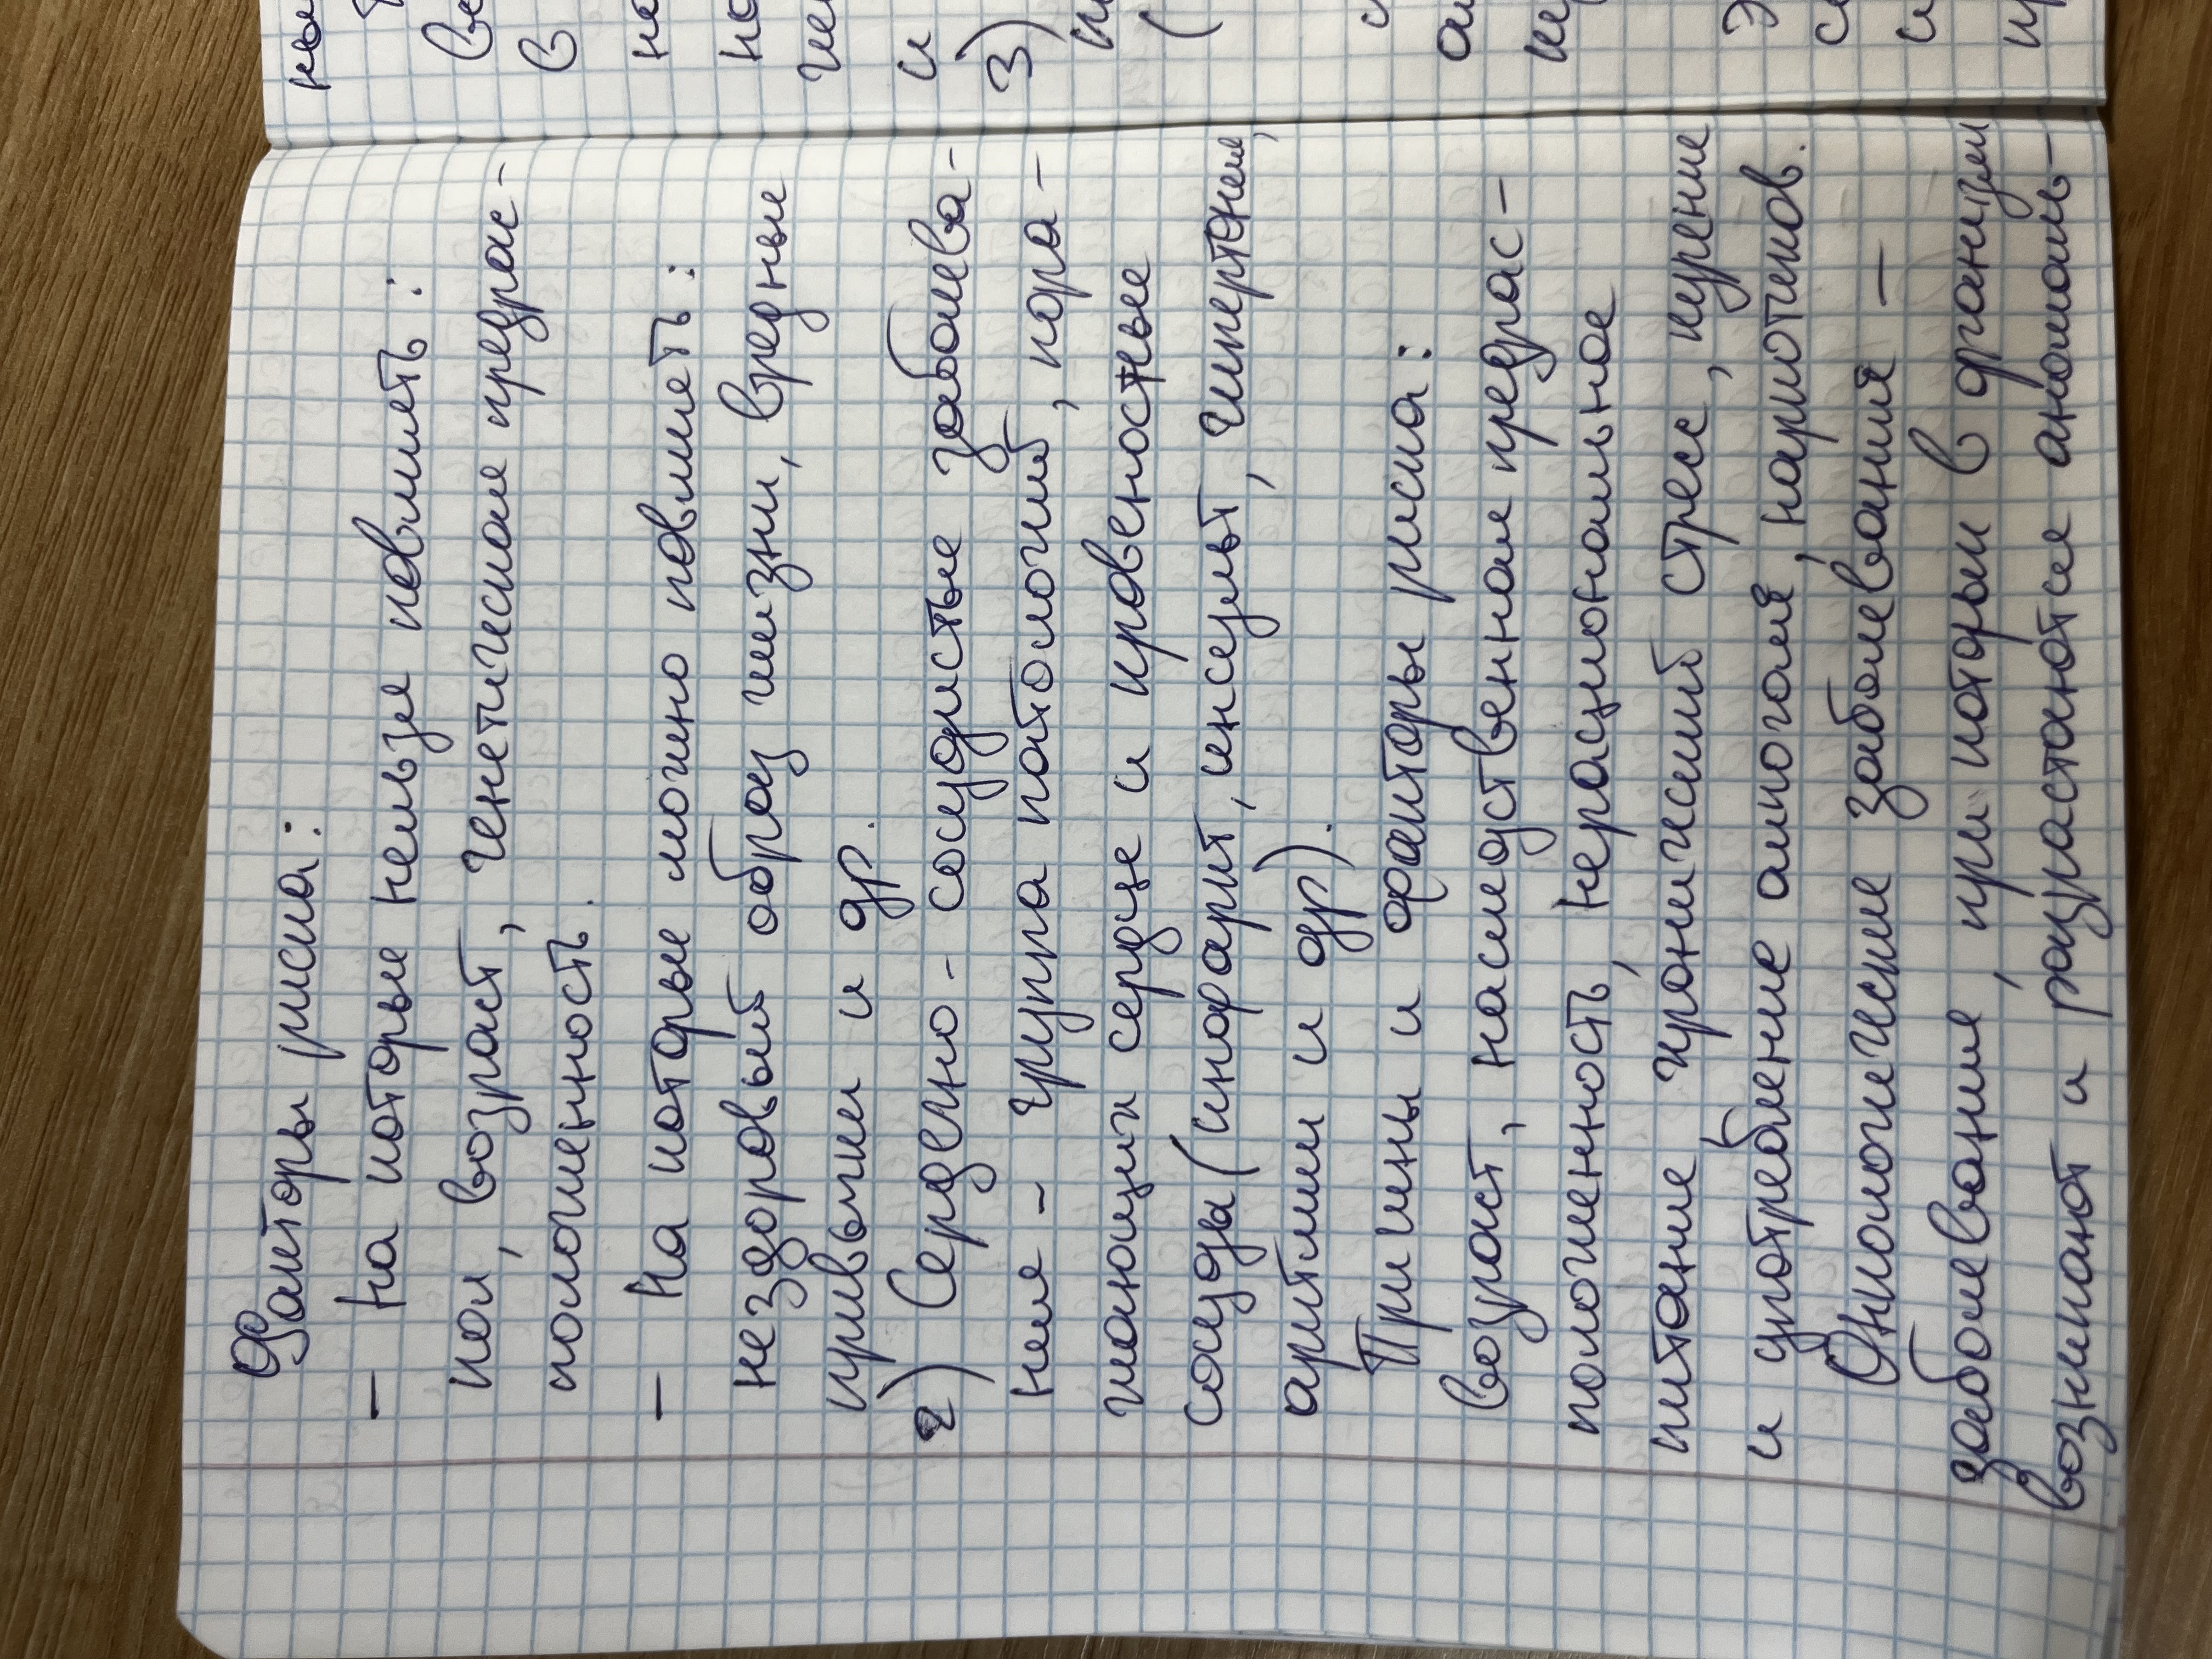 Факторы риска:
– На которые нельзя повлиять:
пол, возраст, генетическая предрас-
положенность.
– На которые можно повлиять:
нездоровый образ жизни, вредные
привычки и др.
2) Сердечно-сосудистые заболева-
ния – группа патологий, пора-
жающих сердце и кровеностные
сосуды (инфаркт, инсульт, гипертония,
аритмии и др).
Причины и факторы риска:
возраст, наследственная предрас-
положенность, нерациональное
питание, хронический стресс, курение
и употребление алкоголя, наркотиков.
Онкологические заболевания –
заболевание, при котором в организм
возникают и разрастаются аномаль-
ны
В
не
и
3)